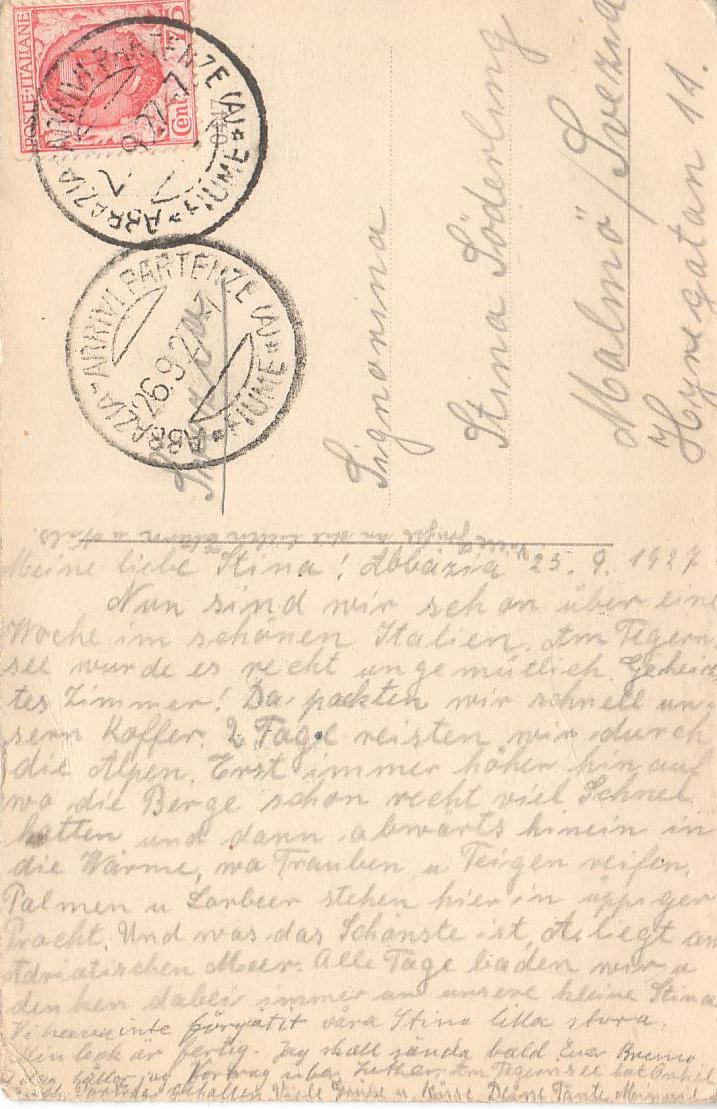 POSTE·ITALIANE
Cent 75
ABBAZIA "ARRIVI PARTENZE (A)" FIUME
ABBAZIA "ARRIVI PARTENZE (A)" FIUME
26.9.27
Signorina
Stina Söderlung
Malmö/Svezia
Hyregatan 11.
Meine liebe Stina! Abbazia 25. 9. 1927
Nun sind wir schon über eine
Woche im schönen Italien. Am Tegern
see wurde es recht ungemütlich. Geheiz
tes Zimmer! Da packten wir schnell un-
sern Koffer. 2 Tage reisten wir durch
die Alpen. Erst immer höher hinauf
wo die Berge schon recht viel Schnee
hatten und dann abwärts hinein in
die Wärme, wo Trauben u Feigen reifen.
Palmen u Lorbeer stehen hier in üppiger
Pracht. Und was das Schönste ist, A. liegt am
Adriatischen Meer. Alle Tage baden wir u
denken dabei immer an unsere kleine Stina
Vi hava inte förgätit våra Stina lilla stora.
Min bok är fertig. Jag skall sända bald. Euer Bruno
håller jag Vortrag über Luther. Am Tegernsee hat Onkel
Vorträge gehalten Viele Grüsse u Küsse Deine Tante